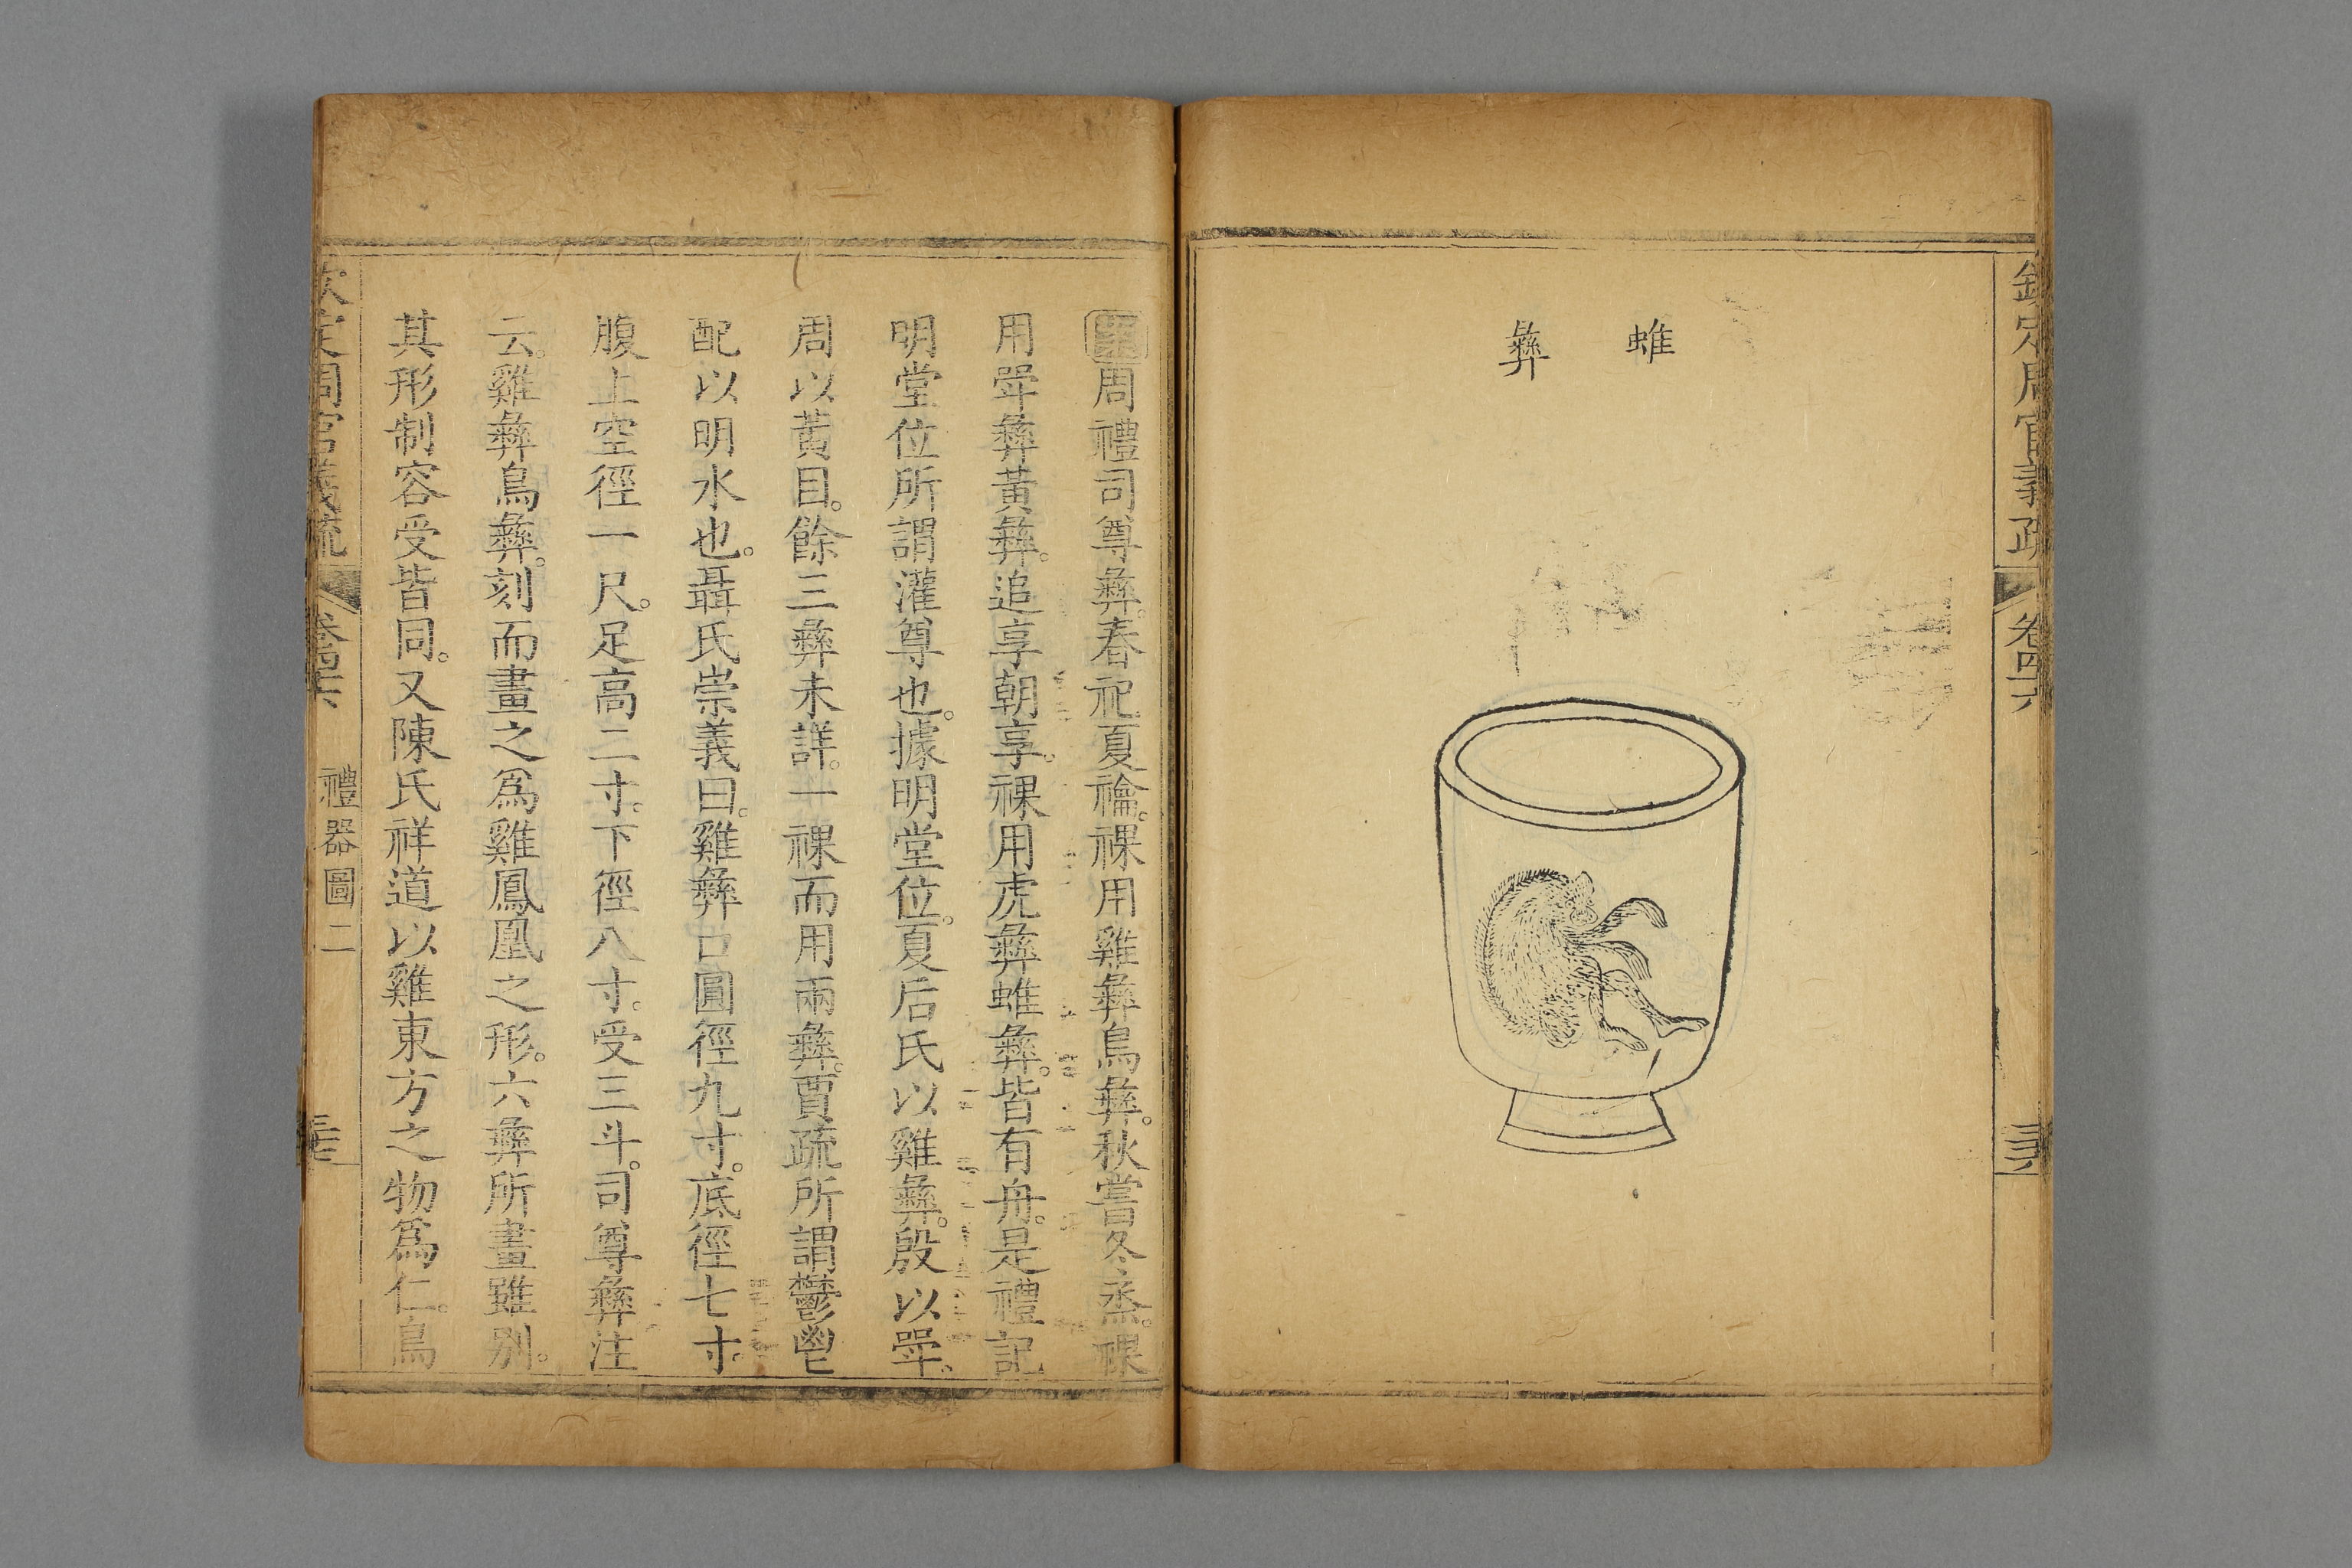 欽定周官義疏 卷四十六
蜼
彝
周禮司尊彝春祀夏禴祼用雞彝鳥彝秋嘗冬烝祼
用斝彝黃彝追享朝享祼用虎彝蜼彝皆有舟是禮記
明堂位所謂灌尊也據明堂位夏后氏以雞彝殷以斝
周以黃目餘三彝未詳一祼而用兩彝賈疏所謂鬱鬯
配以明水也聶氏崇義曰雞彝口圓徑九寸底徑七寸
腹上空徑一尺足高二寸下徑八寸受三斗司尊彝注
云雞彝鳥彝刻而畫之爲雞鳳凰之形六彝所畫雖别
其形制容受皆同又陳氏祥道以雞東方之物爲仁鳥
欽定周官義疏 卷四十六 禮器圖二